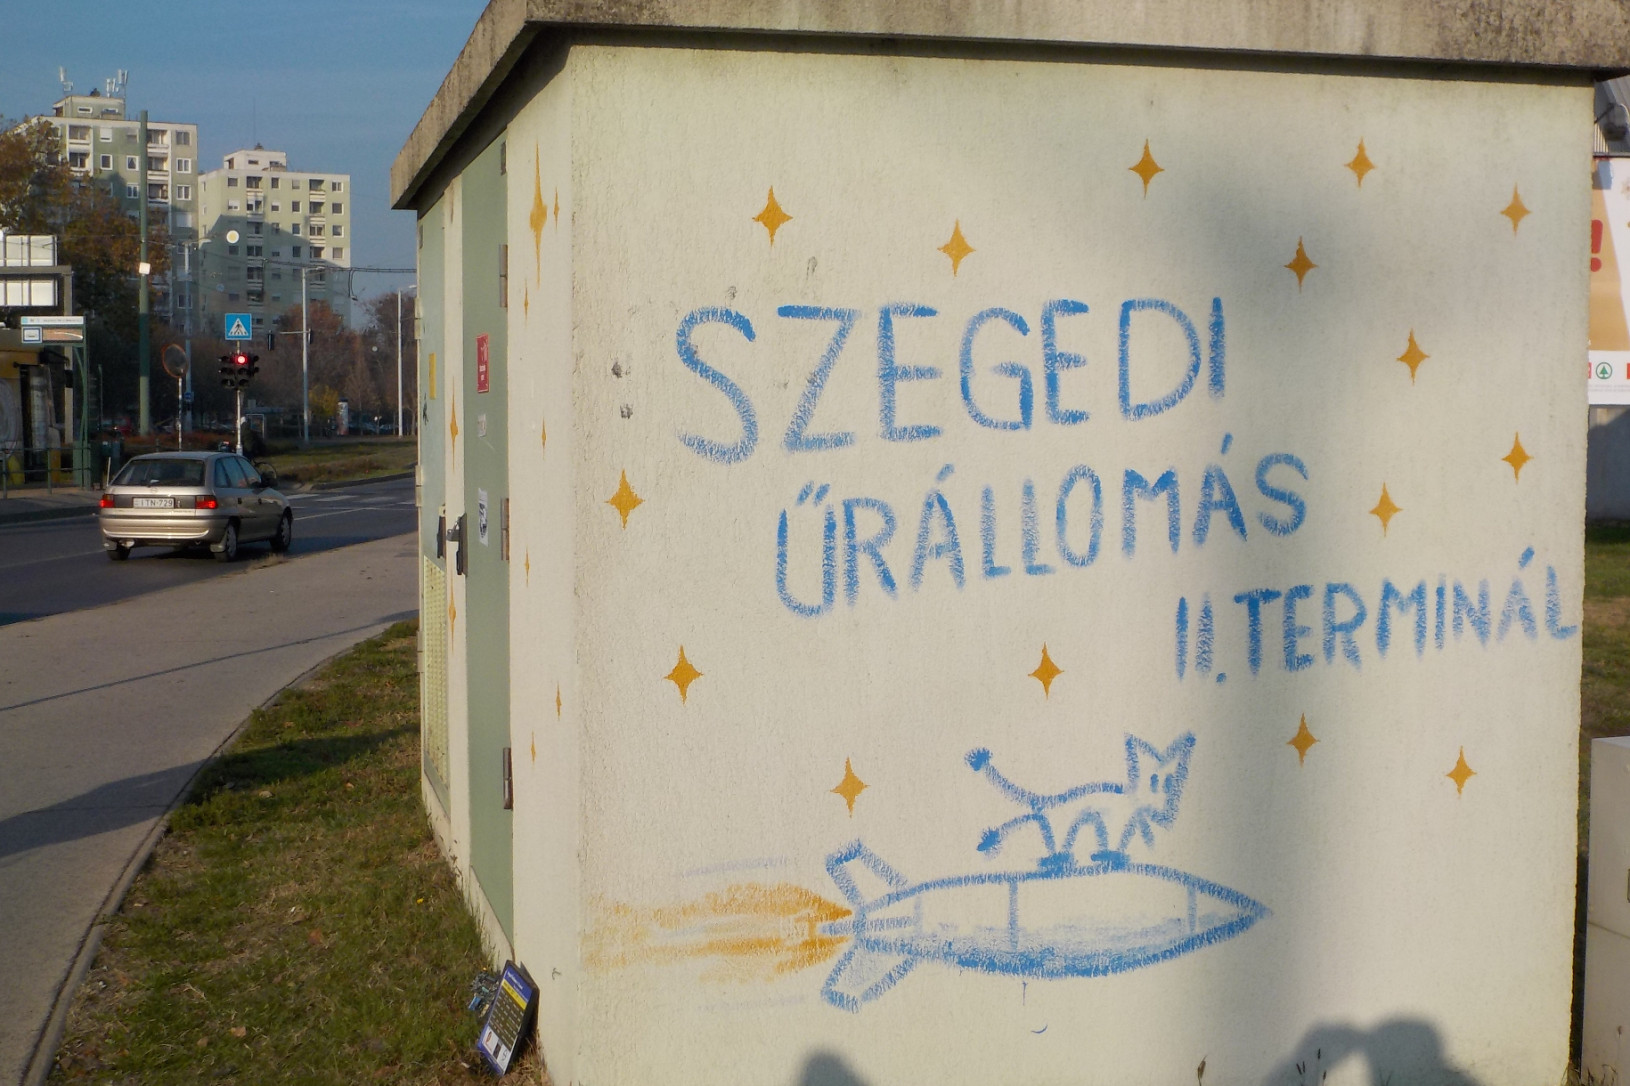 SZEGEDI
ŰRÁLLOMÁS
II. TERMINÁL